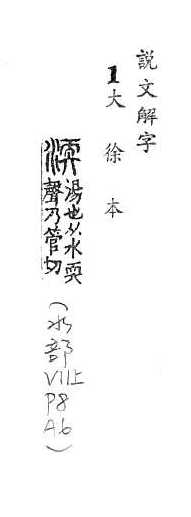 説文解字
1大徐本
渜
湯也从水耎
聲乃管切
(水部VII上P8A6)